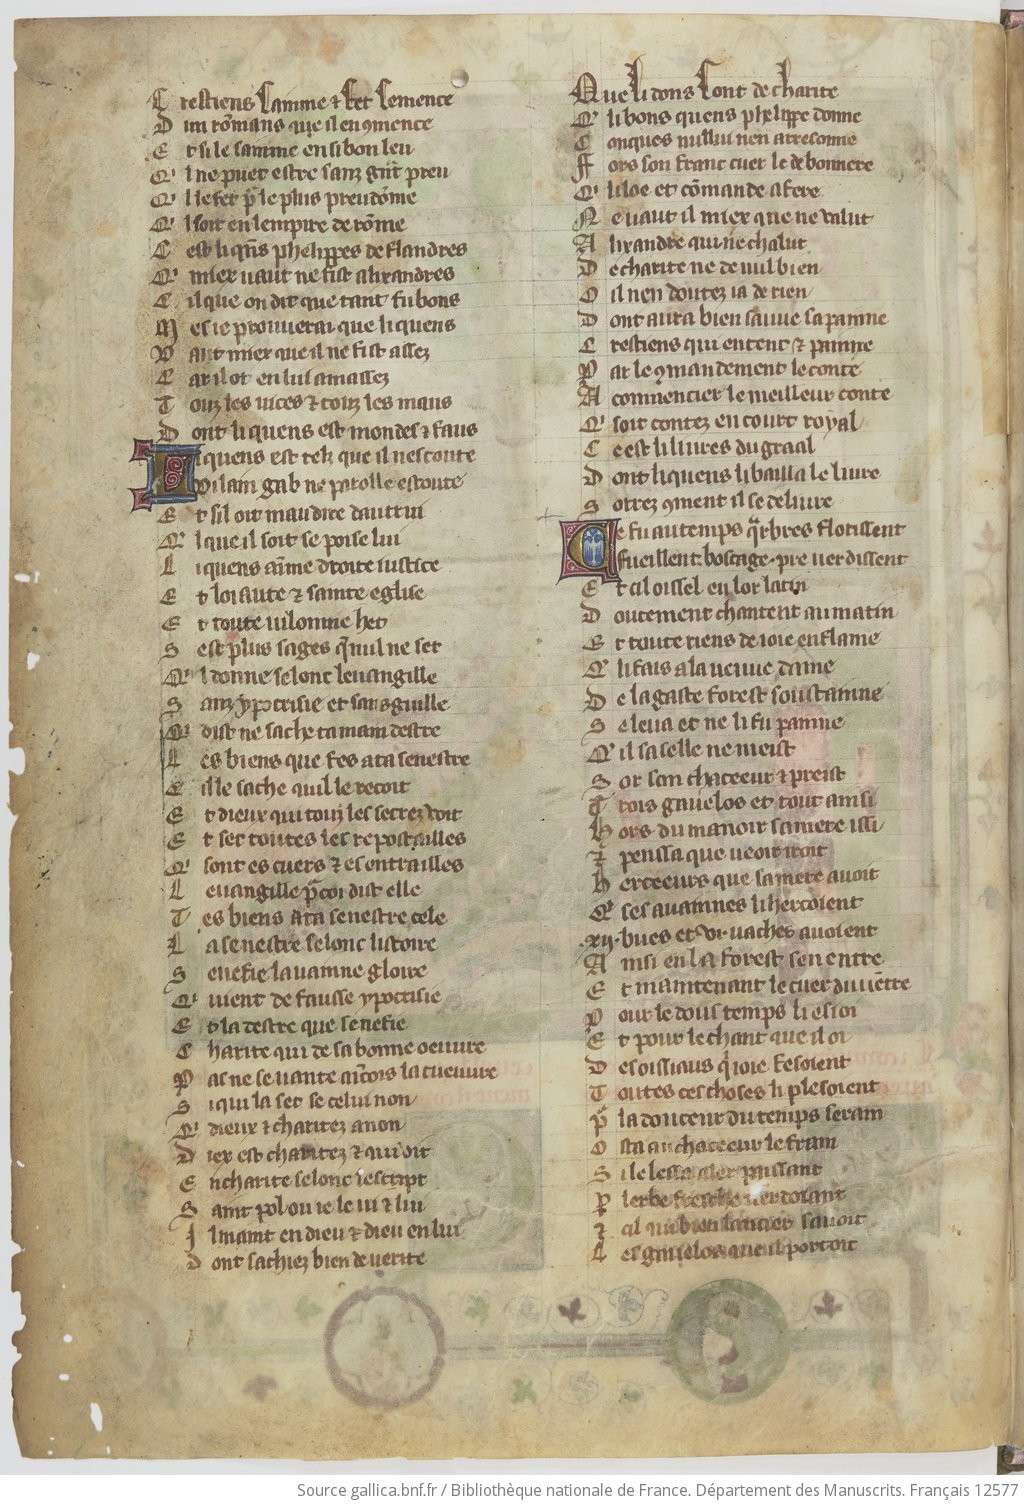 C restiens samme ⁊ fet semence
D im romans que il en ꝯmence
E t si le samme en si bon leu
Q' l ne puet estre sanz gñt preu
Q' l le fet p̃ le plus preudõme
Q' l soit en lempire de rõme
C est li quñs phelippes de flandres
Q' miex uaut ne fist alixandres
C il que on dit que tant fu bons
M es ie prouuerai que li quens
V aut miex que il ne fist assez
C ar il ot en lui amassez
T ouz les uices ⁊ touz les maus
D ont li quens est mondes ⁊ saus
L i quens est telz que il nescoute
Vilain gab ne parolle estoute
E t sil oit maudire dautrui
Q' l que il soit se poise lui
L i quens aim̃e droite iustice
E t loiaute ⁊ sainte eglise
E t toute uilonnie het
S est plus sages q̃ nul ne set
Q' l donne selonc leuangille
S anz ypocrisie et sans guille
Q' dist ne sache ta main destre
L es biens que fes a ta senestre
C ille sache qui le recoit
E t dieux qui touz les secrez voit
E t set toutes les repostailles
Q' sont es cuers ⁊ es entrailles
L euangille p̃coi dist elle
T es biens a ta senestre cele
L a senestre selonc listoire
S enefie la uainne gloire
Q' uient de fausse ypocrisie
E t la destre que senefie
C harite qui de sa bonne oeuure
P as ne se uante aincois la cueuure
S i qui la set se celui non
Q' dieux ⁊ charitez a non
D iex est charitez ⁊ qui dit
E n charite selonc lescript
S aint pol ou ie le ui ⁊ lui
I l maint en dieu ⁊ dieu en lui
D ont sachiez bien de uerite
Que li dons sont de charite
Q' li bons quens phelippe donne
C onques nullui nen aresonne
F ors son franc cuer le debonnere
Q' li loe et cõmande a fere
N e uaut il miex que ne valut
A lixandre qui ne chalut
D e charite ne de nul bien
O il nen doutez ia de rien
D ont aura bien sauue sa painne
C restiens qui entent ⁊ painne
P ar le ꝯmandement le conte
A commencier le meilleur conte
Q' soit contez en court royal
C e est li liures du graal
D ont li quens li bailla le liure
S orrez ꝯment il se deliure
C e fu au temps q̃rbres florissent
fueillent boscage pre uerdissent
E t cil oissel en lor latin
D oucement chantent au matin
E t toute riens de ioie enflame
Q' li fais a la ueuue dame
D e la gaste forest soustainne
S e leua et ne li fu painne
Q' il sa selle ne meist
S or son chaceeur ⁊ preist
T rois gauelos et tout ainsi
H ors du manoir sa mere issi
⁊ penssa que ueoir iroit
H erceeurs que sa mere auoit
Q' ses auainnes li hercoient
.xij. bues et .vi. uaches auoient
A insi en la forest sen entre
E t maintenant le cuer du uẽtre
P our le dous temps li esioi
E t pour le chant que il oi
D es oissiaus q̃ ioie fesoient
T outes ces choses li plesoient
P̃ la douceur du temps serain
O sta au chaceeur le frain
S i le lessa aler paissant
P lerbe fresche uerdoiant
⁊ cil qui bien lancier sauoit
L es gauelos que il portoit
Source gallica.bnf.fr / Bibliothèque nationale de France. Département des Manuscrits. Français 12577